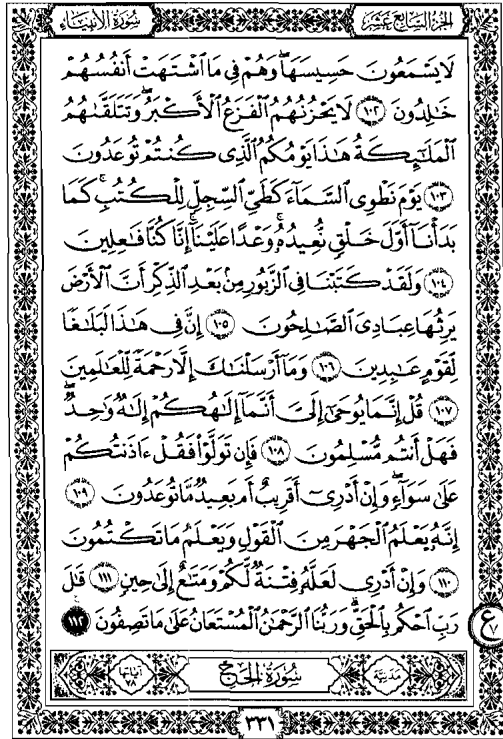 سُورَةُ الأَنبِيَاء الجُزْءُ السَّابِعَ عَشَرَ
لَا يَسْمَعُونَ حَسِيسَهَا ۖ وَهُمْ فِى مَا ٱشْتَهَتْ أَنفُسُهُمْ
خَـٰلِدُونَ ١٠٢ لَا يَحْزُنُهُمُ ٱلْفَزَعُ ٱلْأَكْبَرُ وَتَتَلَقَّىٰهُمُ
ٱلْمَلَـٰٓئِكَةُ هَـٰذَا يَوْمُكُمُ ٱلَّذِى كُنتُمْ تُوعَدُونَ
١٠٣ يَوْمَ نَطْوِى ٱلسَّمَآءَ كَطَىِّ ٱلسِّجِلِّ لِلْكُتُبِ ۚ كَمَا
بَدَأْنَآ أَوَّلَ خَلْقٍ نُّعِيدُهُۥ ۚ وَعْدًا عَلَيْنَآ ۚ إِنَّا كُنَّا فَـٰعِلِينَ
١٠٤ وَلَقَدْ كَتَبْنَا فِى ٱلزَّبُورِ مِنۢ بَعْدِ ٱلذِّكْرِ أَنَّ ٱلْأَرْضَ
يَرِثُهَا عِبَادِىَ ٱلصَّـٰلِحُونَ ١٠٥ إِنَّ فِى هَـٰذَا لَبَلَـٰغًا
لِّقَوْمٍ عَـٰبِدِينَ ١٠٦ وَمَآ أَرْسَلْنَـٰكَ إِلَّا رَحْمَةً لِّلْعَـٰلَمِينَ
١٠٧ قُلْ إِنَّمَا يُوحَىٰٓ إِلَىَّ أَنَّمَآ إِلَـٰهُكُمْ إِلَـٰهٌ وَٰحِدٌ ۖ
فَهَلْ أَنتُم مُّسْلِمُونَ ١٠٨ فَإِن تَوَلَّوْا۟ فَقُلْ ءَاذَنتُكُمْ
عَلَىٰ سَوَآءٍ ۖ وَإِنْ أَدْرِىٓ أَقَرِيبٌ أَم بَعِيدٌ مَّا تُوعَدُونَ ١٠٩
إِنَّهُۥ يَعْلَمُ ٱلْجَهْرَ مِنَ ٱلْقَوْلِ وَيَعْلَمُ مَا تَكْتُمُونَ
١١٠ وَإِنْ أَدْرِى لَعَلَّهُۥ فِتْنَةٌ لَّكُمْ وَمَتَـٰعٌ إِلَىٰ حِينٍ ١١١ قَـٰلَ
رَبِّ ٱحْكُم بِٱلْحَقِّ ۗ وَرَبُّنَا ٱلرَّحْمَـٰنُ ٱلْمُسْتَعَانُ عَلَىٰ مَا تَصِفُونَ ١١٢
ع ٧
مَدَنِيَّة سُورَةُ الحَجّ آيَاتُهَا ٧٨
٣٣١